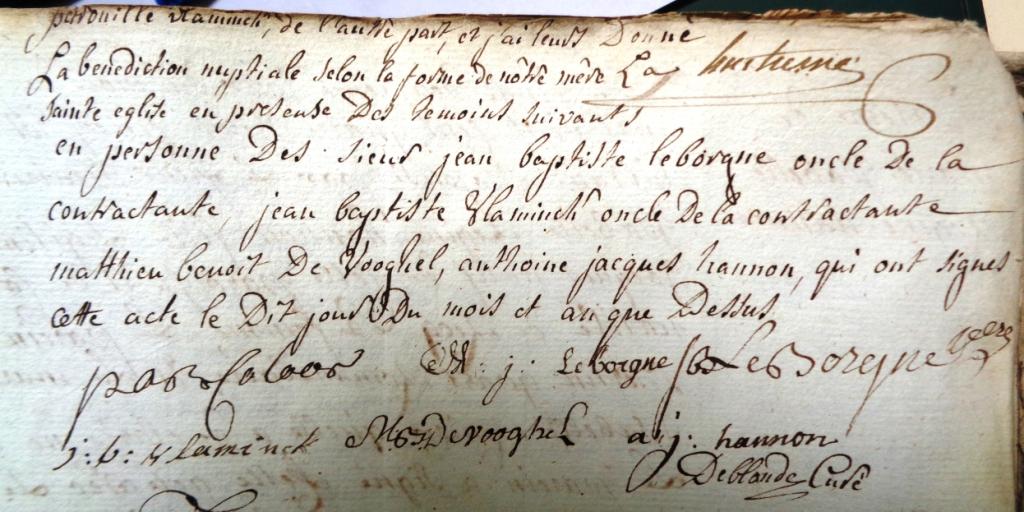 petronille vlaminck, de l'autre part, et j'ai leurs Donné
La benediction nuptiale selon la forme de nôtre mére La
Sainte eglise en presense Des temoins suivants
en personne Des sieurs jean baptiste leborgne oncle De la
contractante, jean baptiste Vlaminck oncle De la contractante
matthieu benoit De Vooghel, anthoine jacques hannon, qui ont signés
cette acte le Dit jour Du mois et an que Dessus
j: Leborgne JB LeBorgne
j: b: vlaminck MB Devooghel a: j: hannon
Deblande Curé